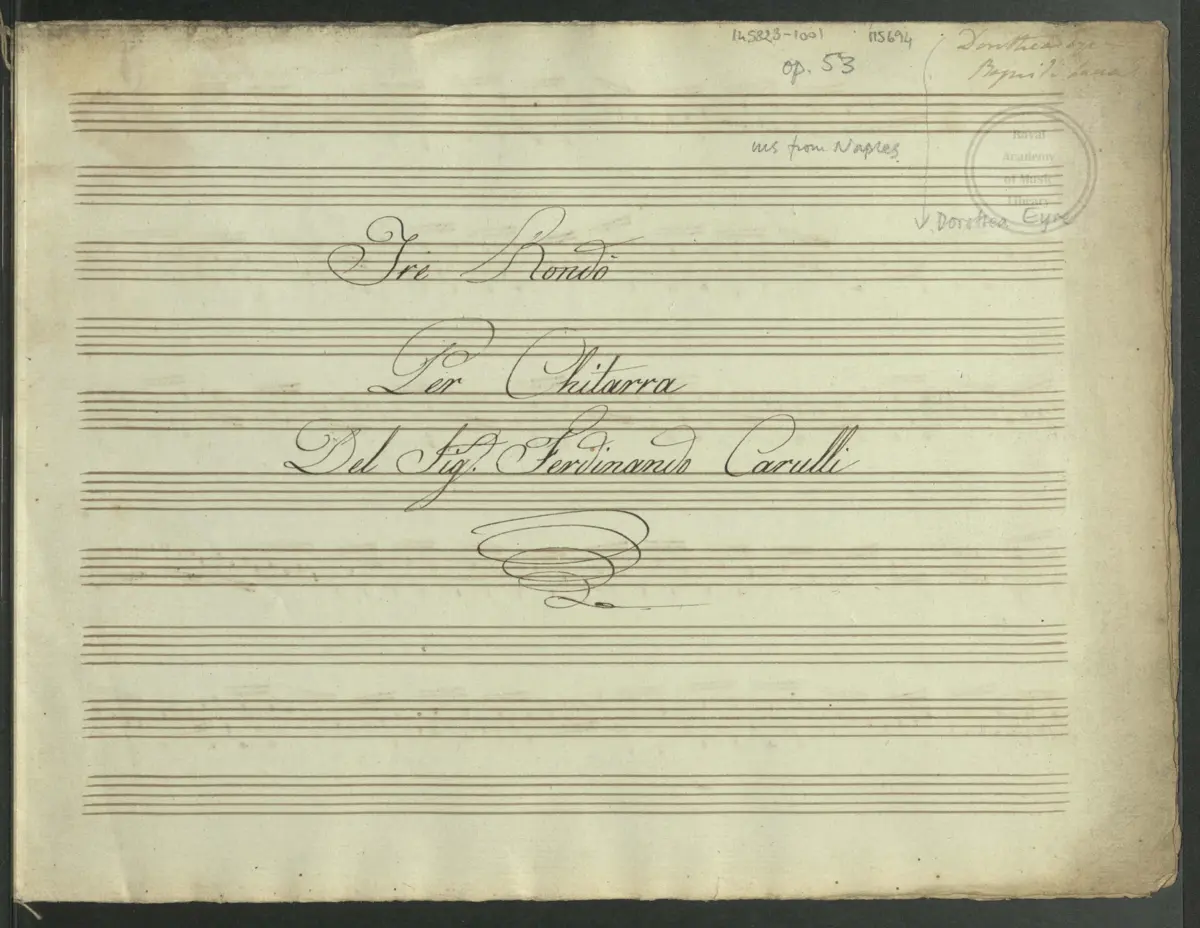 145823-1001 115694
op. 53
ms from Naples
Royal
Academy
of Music
Library
Dorothea Eyre
Tre Rondò
Per Chitarra
Del Sig.r Ferdinando Carulli